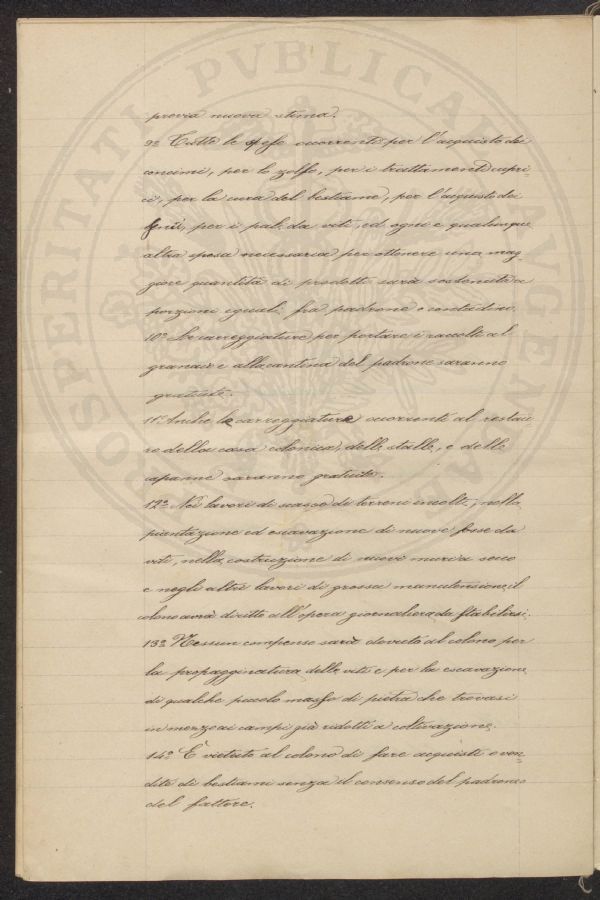 previa nuova stima.
9º Tutte le spese occorrenti per l'acquisto dei
concimi, per lo zolfo, per i trattamenti cupri
ci, per la cura del bestiame, per l'acquisto dei
per i pali da viti, ed ogni e qualunque
altra spesa necessaria per ottenere una mag=
giore quantità di prodotti sarà sostenuta a
porzioni eguali fra padrone e contadino.
10º Le carreggiature per portare i raccolti al
granaio e alla cantina del padrone saranno
gratuite.
11º Anche le carreggiature occorrenti al restau
ro della casa colonica, delle stalle, e delle
capanne saranno gratuite.
12º Nei lavori di scasso di terreni incolti, nella
piantazione ed escavazione di nuove fosse da
viti, nella costruzione di nuovi muri a secco
e negli altri lavori di grossa manutensione, il
colono avrà diritto all'opera giornaliera da stabilirsi.
13º Nessun compenso sarà dovuto al colono per
la propagginatura delle viti e per la escavazione
di qualche piccolo masso di pietra che trovasi
in mezzo ai campi già ridotti a coltivazione.
14º È vietato al colono di fare acquisti o ven=
dite di bestiami senza il consenso del padrone o
del fattore.
PROSPERITATI PVBLICAE AVGENDAE